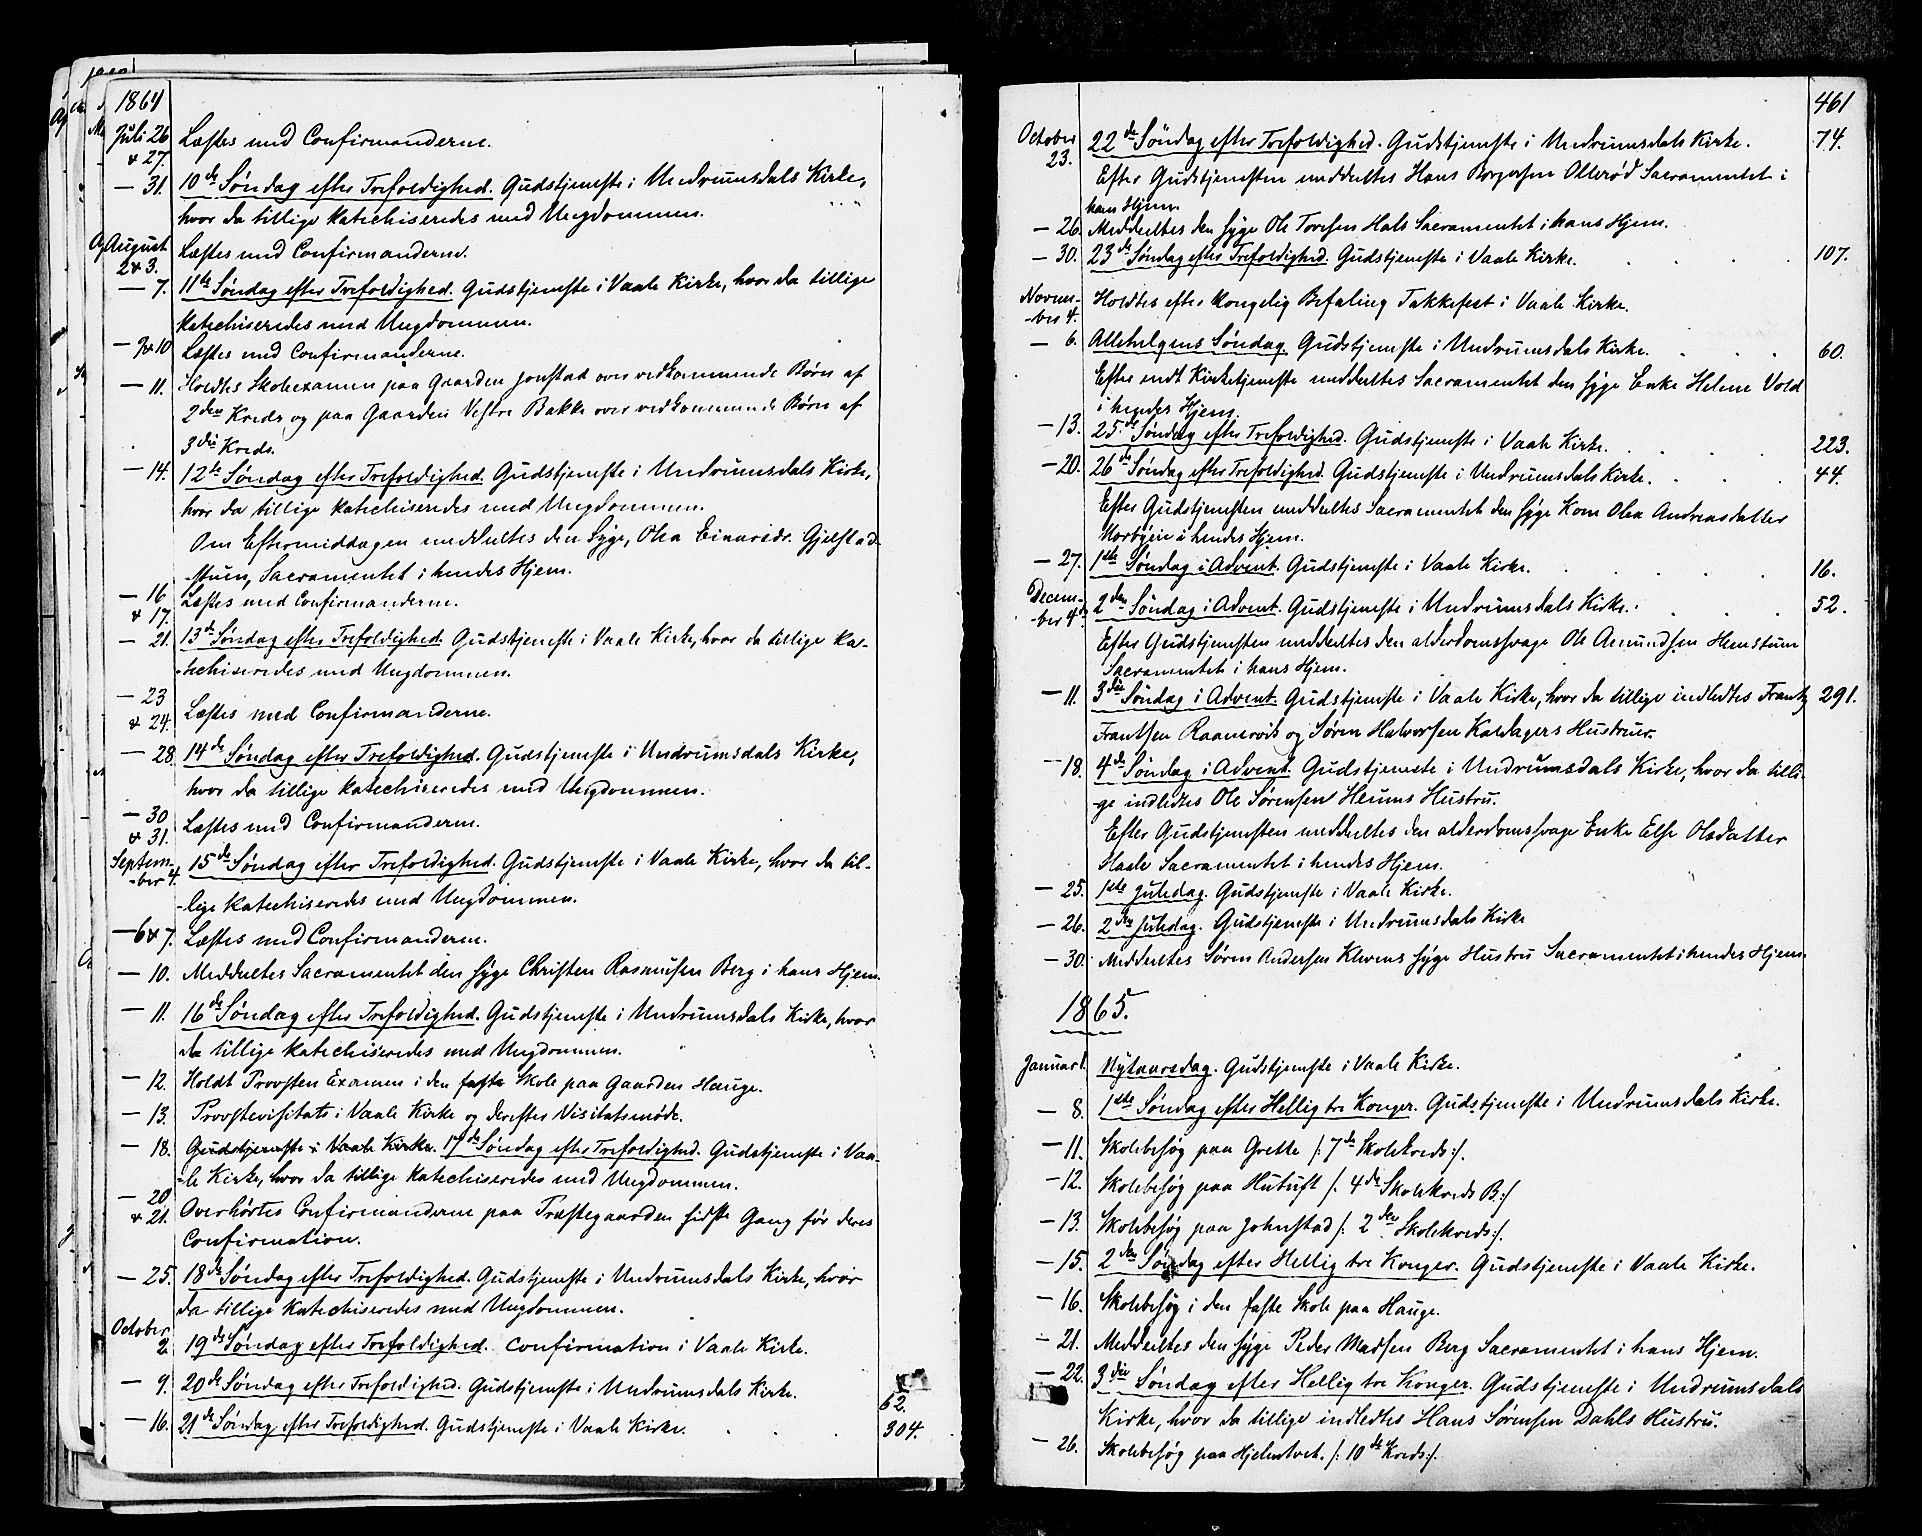 1864
Juli 26 Læstes med Confirmanderne.
& 27.
— 31. 10de Søndag efter Trefoldighed. Gudstjeneste i Undrumsdals Kirke,
hvor da tillige katechiseredes med Ungdommen.
August Læstes med Confirmanderne.
2 & 3.
— 7. 11te Søndag efter Trefoldighed. Gudstjeneste i Vaale Kirke, hvor da tillige
katechiseredes med Ungdommen.
— 9 & 10 Læstes med Confirmanderne.
— 11. Holdtes Skoleexamen paa Gaarden Jonstad over vedkommende Børn af
2den Kreds og paa Gaarden Vestre Bakke over vedkommende Børn af
3die Kreds.
— 14. 12te Søndag efter Trefoldighed. Gudstjeneste i Undrumsdals Kirke,
hvor da tillige katechiseredes med Ungdommen.
Om Eftermiddagen meddeltes den Syge, Olea Einarsdr. Gjelstad-
stuen, Sacramentet i hendes Hjem.
— 16 Læstes med Confirmanderne.
& 17.
— 21. 13de Søndag efter Trefoldighed. Gudstjeneste i Vaale Kirke, hvor da tillige ka-
-techiseredes med Ungdommen.
— 23
& 24. Læstes med Confirmanderne.
— 28. 14de Søndag efter Trefoldighed. Gudstjeneste i Undrumsdals Kirke,
hvor da tillige katechiseredes med Ungdommen.
— 30
& 31. Læstes med Confirmanderne.
Septem- 15de Søndag efter Trefoldighed. Gudstjeneste i Vaale Kirke, hvor da til-
-ber 4.
-lige katechiseredes med Ungdommen.
— 6 & 7. Læstes med Confirmanderne.
— 10. Meddeltes Sacramentet den syge Christen Rasmusen Berg i hans Hjem.
— 11. 16de Søndag efter Trefoldighed. Gudstjeneste i Undrumsdals Kirke, hvor
da tillige katechiseredes med Ungdommen.
— 12. Holdt Provsten Examen i den faste Skole paa Gaarden Hauge.
— 13. Provstevisitats i Vaale Kirke og derefter Visitatsmøde.
— 18. Gudstjeneste i Vaale Kirke. 17de Søndag efter Trefoldighed. Gudstjeneste i Vaa-
-le Kirke, hvor da tillige katechiseredes med Ungdommen.
— 20
& 21. Overhørtes Confirmanderne paa Præstegaarden sidste Gang før deres
Confirmation.
— 25. 18de Søndag efter Trefoldighed. Gudstjeneste i Undrumsdals Kirke, hvor
da tillige katechiseredes med Ungdommen.
October
2. 19de Søndag efter Trefoldighed. Confirmation i Vaale Kirke.
— 9. 20de Søndag efter Trefoldighed. Gudstjeneste i Undrumsdals Kirke. 62.
— 16. 21de Søndag efter Trefoldighed. Gudstjeneste i Vaale Kirke. 304.
461
October 22de Søndag efter Trefoldighed. Gudstjeneste i Undrumsdals Kirke. 74.
23.
Efter Gudstjenesten meddeltes Hans Borgersen Ollerød Sacramentet i
hans Hjem.
— 26. Meddeltes den syge Ole Toresen Hals Sacramentet i hans Hjem.
— 30. 23de Søndag efter Trefoldighed. Gudstjeneste i Vaale Kirke. 107.
Novem- Holdtes efter kongelig Befaling Takkefest i Vaale Kirke.
-ber 4.
— 6. Allehelgens Søndag. Gudstjeneste i Undrumsdals Kirke. 60.
Efter endt Kirketjeneste meddeltes Sacramentet den syge Enke Helene Vold
i hendes Hjem.
— 13. 25de Søndag efter Trefoldighed. Gudstjeneste i Vaale Kirke. 223.
— 20. 26de Søndag efter Trefoldighed. Gudstjeneste i Undrumsdals Kirke. 44.
Efter Gudstjenesten meddeltes Sacramentet den syge Kone Olea Andreasdatter
i hendes Hjem.
— 27. 1ste Søndag i Advent. Gudstjeneste i Vaale Kirke. 16.
Decem- 2den Søndag i Advent. Gudstjeneste i Undrumsdals Kirke. 52.
-ber 4.
Efter Gudstjenesten meddeltes den alderdomssvage Ole Amundsen Hemstum
Sacramentet i hans Hjem.
— 11. 3die Søndag i Advent. Gudstjeneste i Vaale Kirke, hvor da tillige indledtes Frantz 291.
Frantsen Raanerøds og Søren Halvorsen Kaldagers Hustruer.
— 18. 4de Søndag i Advent. Gudstjeneste i Undrumsdals Kirke, hvor da tilli-
-ge indledtes Ole Sørensen Heums Hustru.
Efter Gudstjenesten meddeltes den alderdomssvage Enke Else Olsdatter
Haale Sacramentet i hendes Hjem.
— 25. 1ste Juledag. Gudstjeneste i Vaale Kirke.
— 26. 2den Juledag. Gudstjeneste i Undrumsdals Kirke
— 30. Meddeltes Søren Andersen Klevens syge Hustru Sacramentet i hendes Hjem.
1865.
Januar 1. Nytaarsdag. Gudstjeneste i Vaale Kirke.
— 8. 1ste Søndag efter Hellig tre Konger. Gudstjeneste i Undrumsdals Kirke.
— 11. Skolebesøg paa Grette /: 7de Skolekreds:/.
— 12. Skolebesøg paa Hutuft /: 4de Skolekreds B:/
— 13. Skolebesøg paa Johnstad /: 2den Skolekreds:/.
— 15. 2den Søndag efter Hellig tre Konger. Gudstjeneste i Vaale Kirke.
— 16. Skolebesøg i den faste Skole paa Hauge.
— 21. Meddeltes den syge Peder Madsen Berg Sacramentet i hans Hjem.
— 22. 3die Søndag efter Hellig tre Konger. Gudstjeneste i Undrumsdals
Kirke, hvor da tillige indledtes Hans Sørensen Dahls Hustru.
— 26. Skolebesøg paa Hjelmtvet. /: 10de Kreds:/.